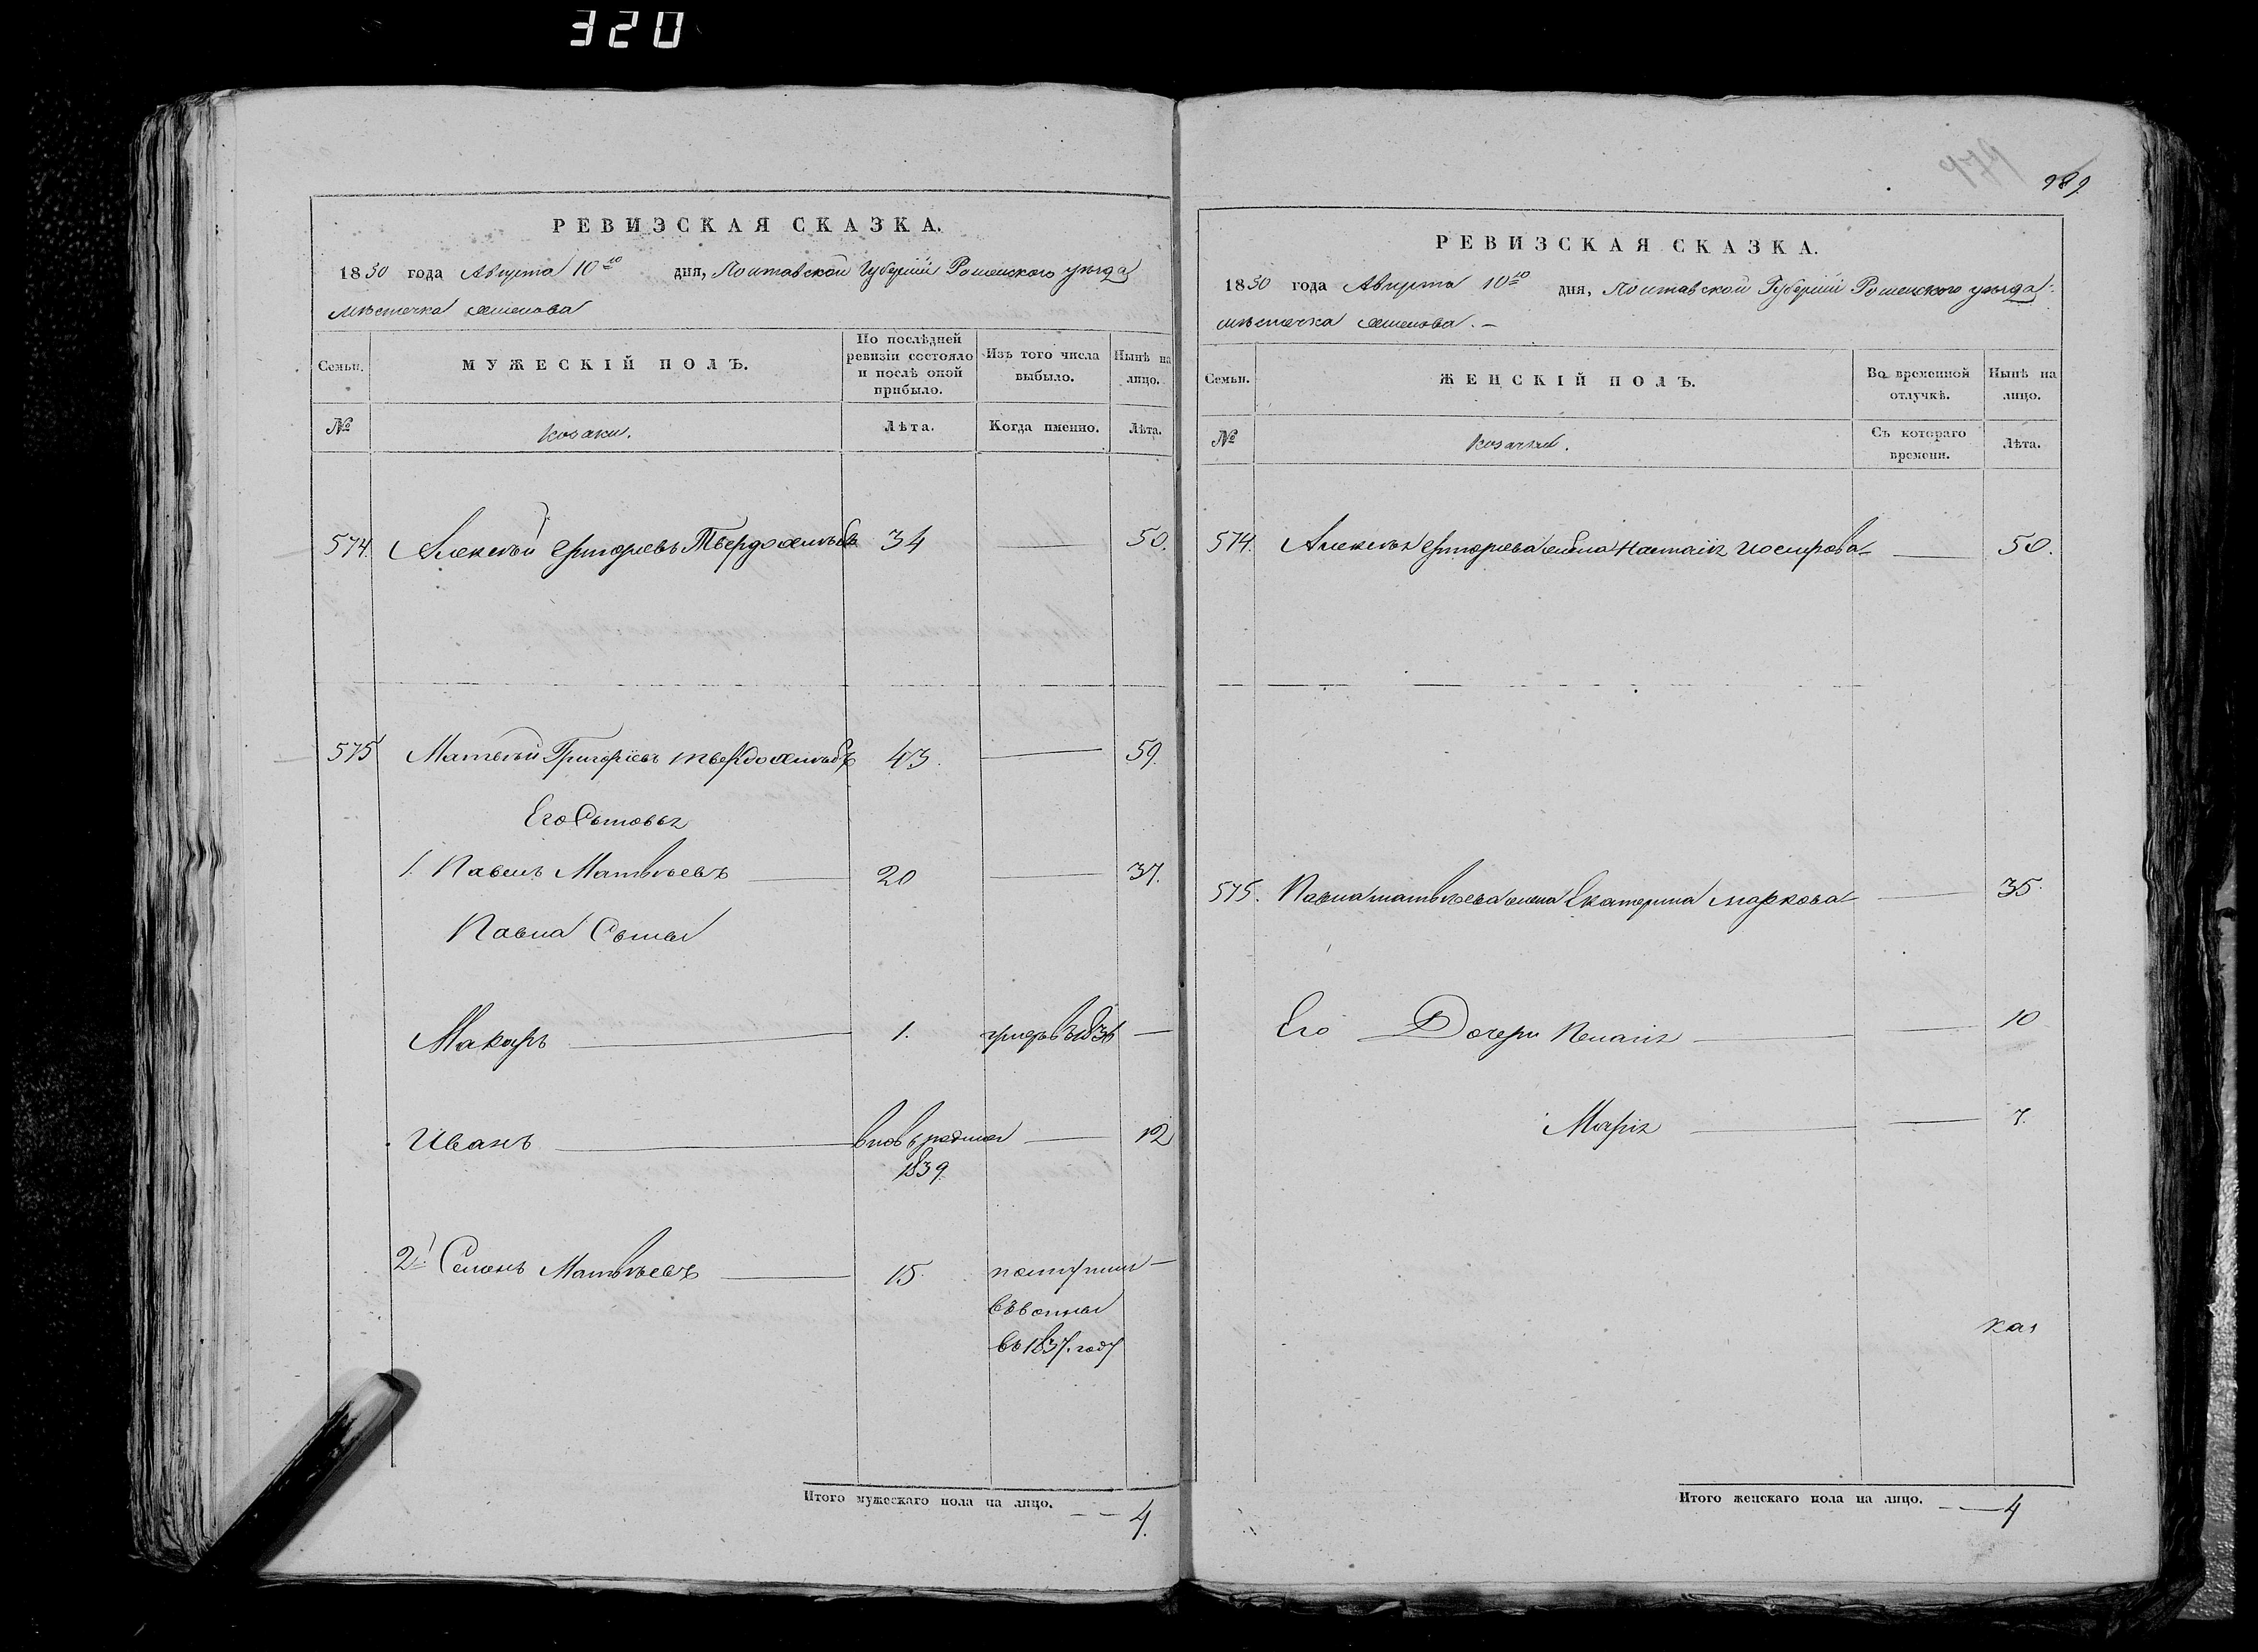 320
РЕВИЗСКАЯ СКАЗКА.
1850 года Августа 10го дня, Полтавской Губерніи Роменского уезда
местечка
Семьи. МУЖЕСКІЙ ПОЛЪ. По послѣдней ревизіи состояло и послѣ оной прибыло. Изъ того числа выбыло. Нынѣ на лицо.
№ козаки. Лѣта. Когда именно. Лѣта.
574. Алексѣй Григорьевъ Твердохлебъ 34 — 50.
575 Матвѣй Григоріевъ твердохлебъ 43. — 59.
Его Сыновья
1. Павелъ Матвѣевъ — 20 — 37.
Павла Сыны
Макаръ — 1. умеръ в 1836 —
Иванъ — вновь родился — 12
1839.
2й Семенъ Матвѣевъ — 15. поступил —
въ 1837. году
Итого мужескаго пола на лицо. — — 4.
989.
РЕВИЗСКАЯ СКАЗКА.
1850 года Августа 10го дня, Полтавской Губерніи Роменского уезда.
местечка
Семьи. ЖЕНСКІЙ ПОЛЪ. Во временной отлучкѣ. Нынѣ на лицо.
№ козачки. Съ котораго времени. Лѣта.
574. Алексея Григорьева жена Настасія Іосифова — 50.
575. Павла матвѣева жена Екатерина маркова — 35.
Его Дочери Пелагія — — 10
Марія — — 7.
каз
Итого женскаго пола на лицо. — — 4